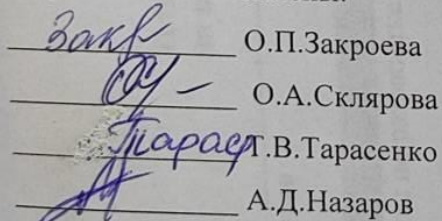 Закр О.П.Закроева
О.А.Склярова
Тарас Т.В.Тарасенко
А.Д.Назаров